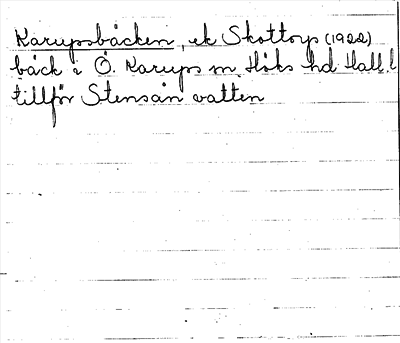 Karupsbäcken, ek Skottorp (1922)
bäck i Ö. Karups sn, Höks hd Hall. l
tillför Stensån vatten